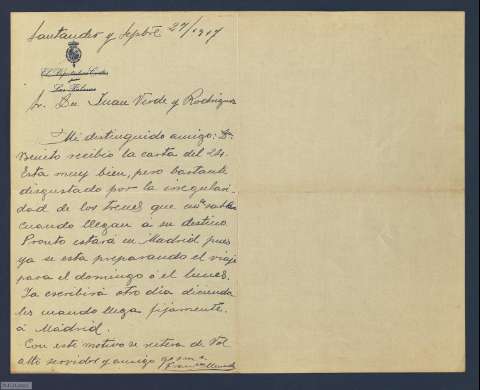 Santander y Sepbre 27/1917
El Diputado a Cortes
por
Las Palmas
Sr. Dn Juan Verde y Rodriguez
Mi distinguido amigo: Dn
Benito recibió la carta del 24.
Esta muy bien, pero bastante
disgustado por la irregulari-
dad de los trenes que no saben
cuando llegan á su destino
Pronto estará en Madrid pues
ya se esta preparando el viaje
para el domingo ó el lunes.
Ya escribirá otro dia diciendo
les cuando llega fijamente.
á Madrid.
Con este motivo se reitera de Vd
atto servidor y amigo q e s m